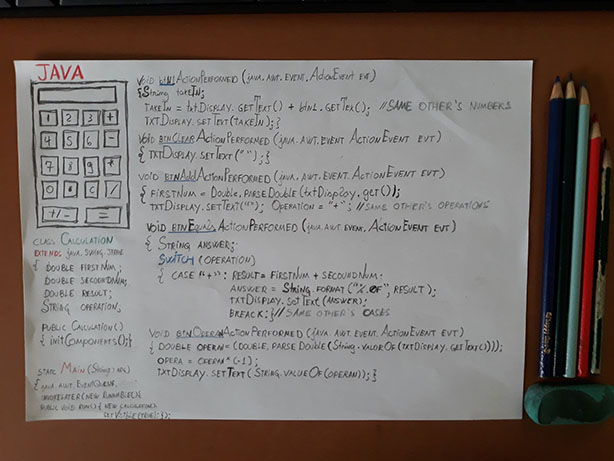 JAVA
1 2 3 +
4 5 6 -
7 8 9 *
0 . C /
+/- =
CLASS CALCULATION
EXTENDS JAVA.SWING.JFRAME
{ DOUBLE FIRSTNUM;
DOUBLE SECOUNDNUM;
DOUBLE RESULT;
STRING OPERATION;
PUBLIC CALCULATION()
{ initComponents();}
STATIC MAIN (String)
{ java.awt.EventQueue.
INVOKELATER(NEW RUNNABLE()
PUBLIC VOID RUN() { NEW CALCULATION()
SETVISIBLE(TRUE); });
VOID btn1ActionPerformed (java.awt.event.ActionEvent evt)
{String takeIn;
TAKEIN = txtDISPLAY.GETTEXT() + btn1.GETTEX(); //SAME OTHER'S NUMBERS
TXTDISPLAY.SETTEXT(TAKEIN);}
VOID BTNCLEARACTIONPERFORMED (java.awt.event.ActionEvent EVT)
{ TXTDISPLAY.SETTEXT(" ");}
VOID btnAddActionPERFORMED (java.awt.event.ActionEvent EVT)
{ FIRSTNUM = Double.PARSEDouble(txtDisplay.get());
TXTDISPLAY.SETTEXT(""); OPERATION = "+"; //SAME OTHER'S OPERATIONS
VOID BTNEqualsActionPERFORMED (java.awt.event.ActionEvent EVT)
{ STRING ANSWER;
SWITCH (OPERATION)
{ CASE "+": RESULT= FIRSTNUM + SECOUNDNUM;
ANSWER = STRING.FORMAT("%.0F", RESULT);
TXTDISPLAY.SETTEXT(ANSWER);
BREACK;}//SAME OTHER'S CASES
VOID BTNOPERANACTIONPERFORMED (java.awt.event.ActionEvent EVT)
{ DOUBLE OPERAN= (DOUBLE.PARSEDOUBLE(String.VALOROF(TXTDISPLAY.GETTEXT())));
OPERA = OPERAN * (-1);
TXTDISPLAY.SETTEXT( STRING.VALUEOF(OPERAN));}